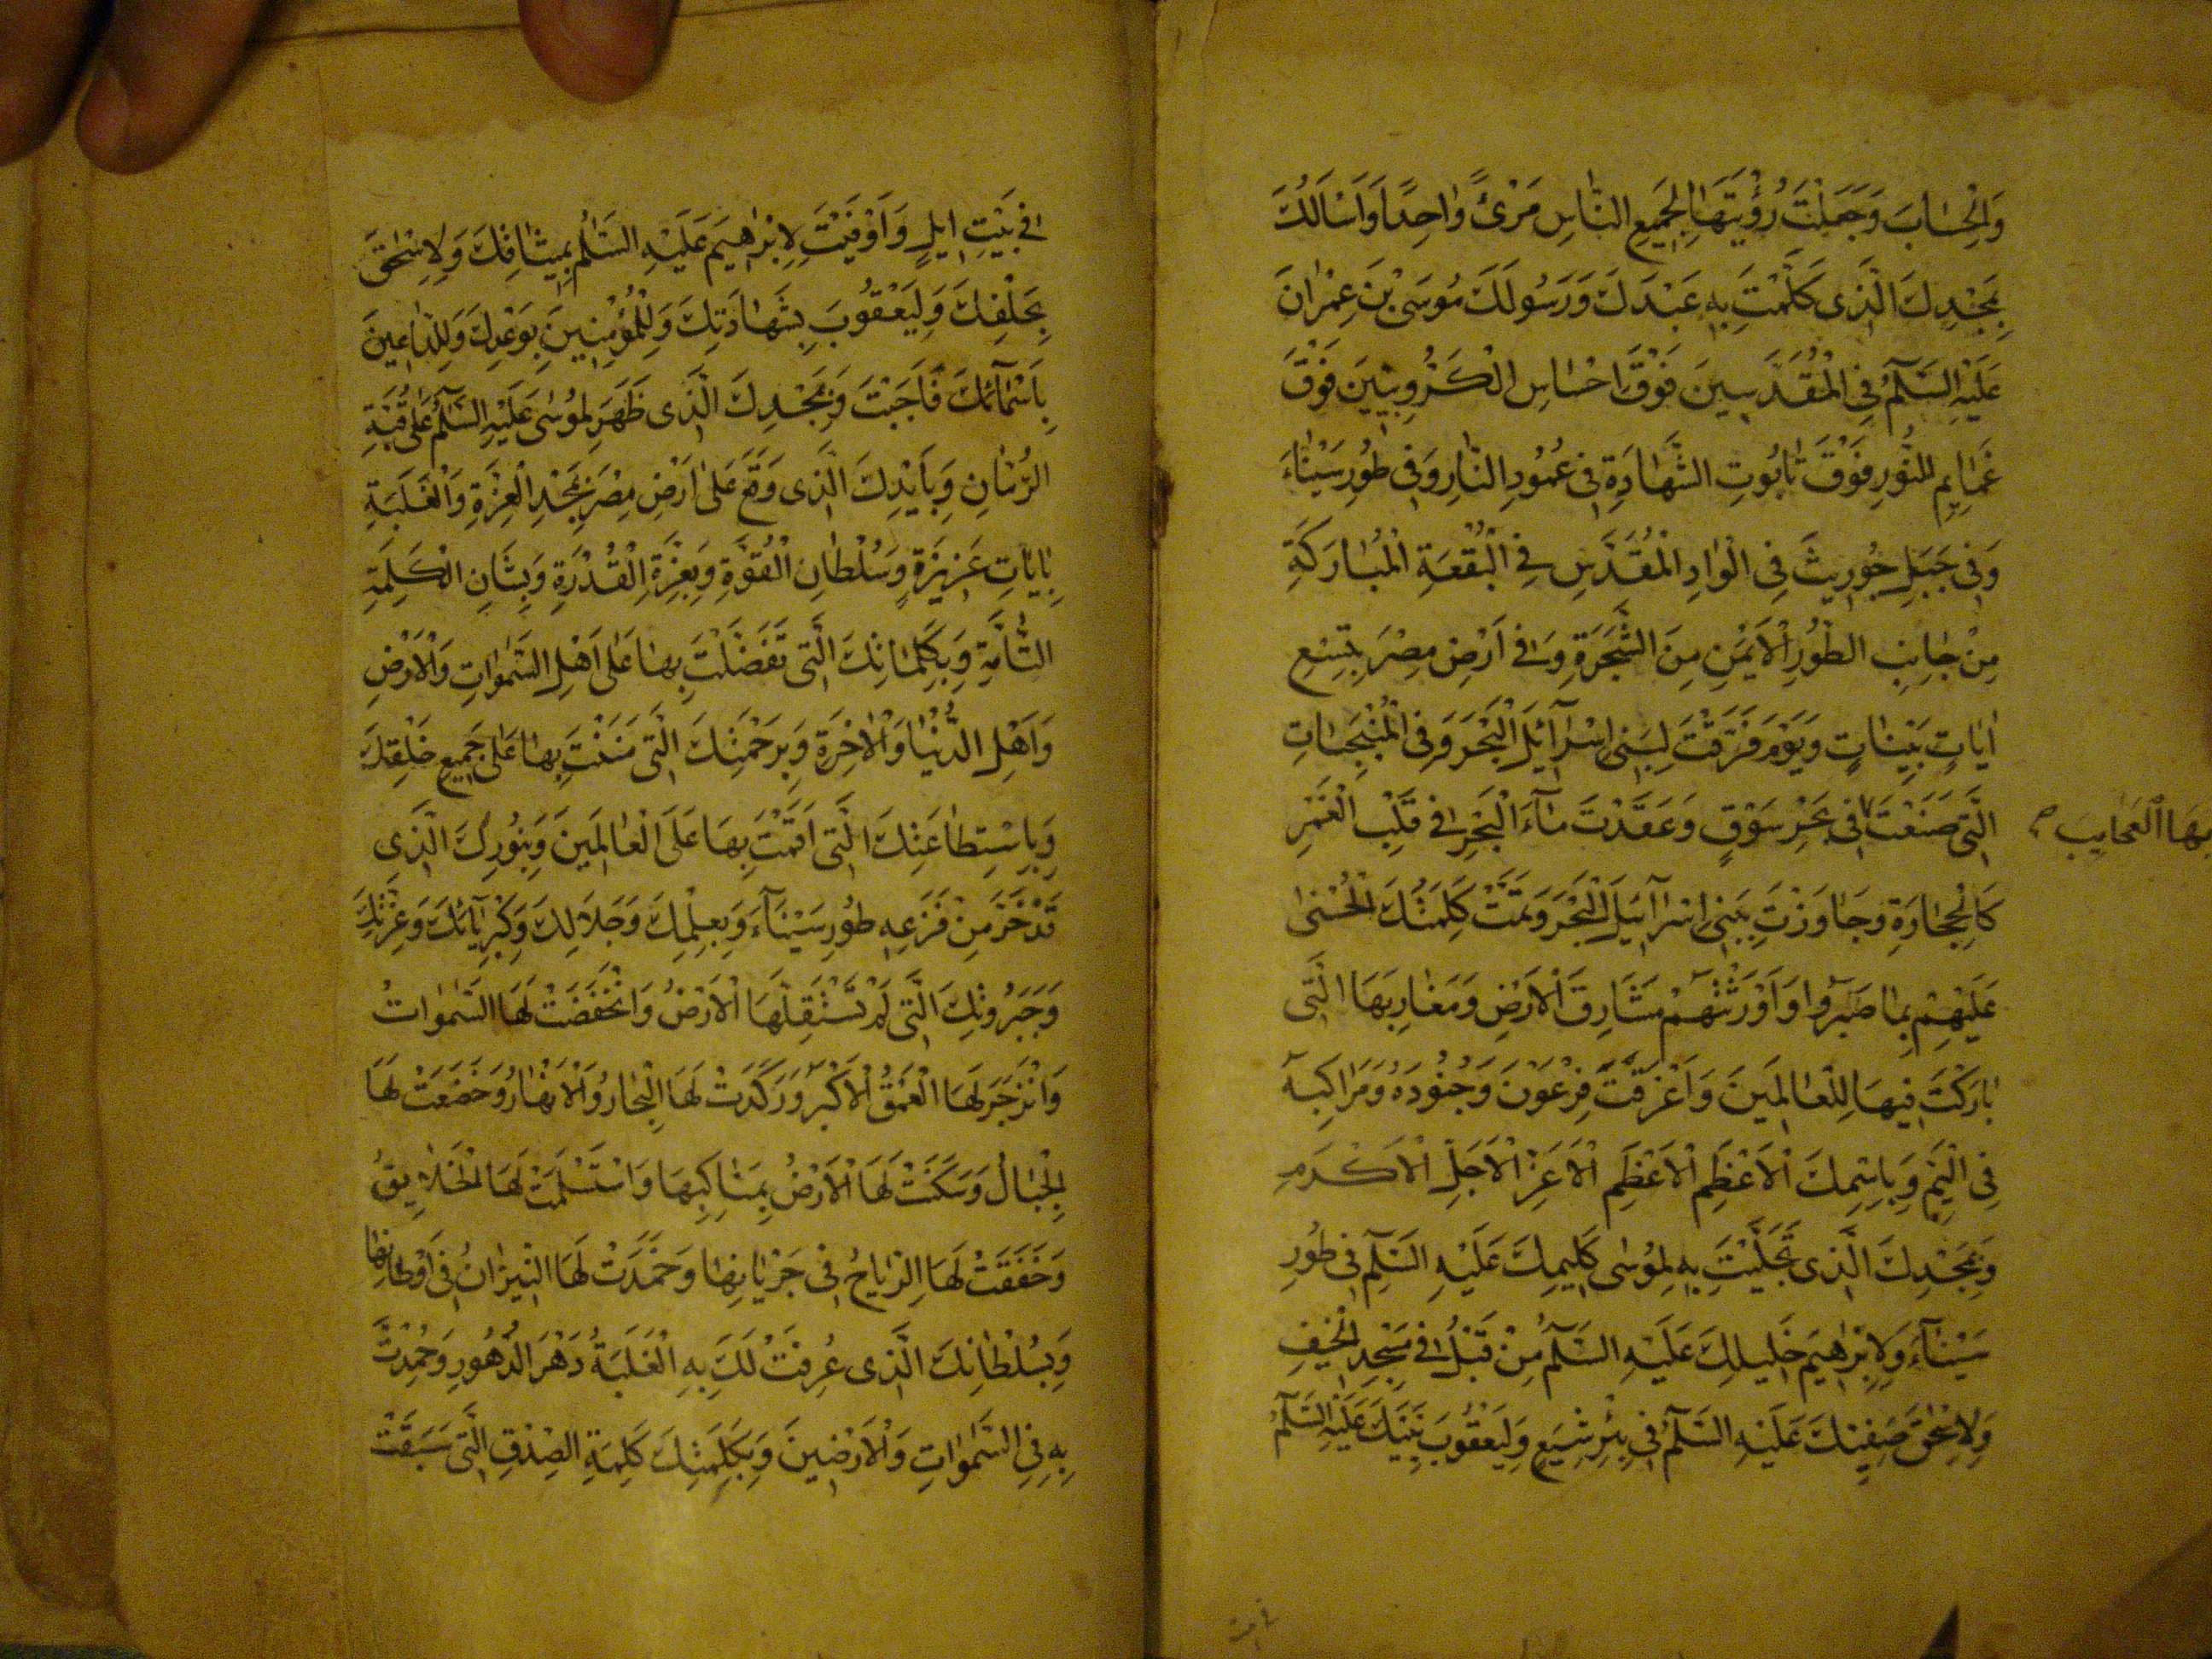 وَالْحِسَابَ وَجَعَلْتَ رُؤْيَتَهَا لِجَمِيعِ النَّاسِ مَرْئً وَاحِدًا وَاَسْاَلُكَ
بِمَجْدِكَ الَّذِى كَلَّمْتَ بِهِ عَبْدَكَ وَرَسُولَكَ مُوسَى بْنَ عِمْرَانَ
عَلَيْهِ السَّلَمُ فِى الْمُقَدَّسِينَ فَوْقَ احْسَاسِ الْكَرُّوبِيينَ فَوْقَ
غَمَايِمِ النُّورِ فَوْقَ تَابُوتِ الشَّهَادَةِ فِى عُمُودِ النَّارِ وَفِى طُورِ سَيْنَاءَ
وَفِى جَبَلِ حُورِيثَ فِى الْوَادِ الْمُقَدَّسِ فِى الْبُقْعَةِ الْمُبَارَكَةِ
مِنْ جَانِبِ الطُّورِ الْاَيْمَنِ مِنَ الشَّجَرَةِ وَفِى اَرْضِ مِصْرَ بِتِسْعِ
ايَاتٍ بَيِّنَاتٍ وَيَوْمَ فَرَقْتَ لِبَنِى اِسْرَآئِلَ الْبَحْرَ وَفِى الْمُنْبَجِسَاتِ
الَّتِى صَنَعْتَ فِى بَحْرِ سَوْقٍ وَعَقَدْتَ مَآءَ الْبَحْرِ فِى قَلْبِ الْغَمْرِ
بِهَا الْعَجَايِبَ
كَالْحِجَارَةِ وَجَاوَزْتَ بِبَنِى اِسْرَآئِيلَ الْبَحْرَ وَتَمَّتْ كَلِمَتُكَ الْحُسْنى
عَلَيْهِمْ بِمَا صَبَرُوا وَاَوْرَثْتَهُمْ مَشَارِقَ الْاَرْضِ وَمَغَارِبَهَا الَّتِى
بَارَكْتَ فِيهَا لِلْعَالَمِينَ وَاَغْرَقْتَ فِرْعَوْنَ وَجُنُودَهُ وَمَرَاكِبَهُ
فِى الْيَمِّ وَبِاسْمِكَ الْاَعْظَمِ الْاَعْظَمِ الْاَعَزِّ الْاَجَلِّ الْاَكْرَمِ
وَبِمَجْدِكَ الَّذِى تَجَلَّيْتَ بِهِ لِمُوسٰى كَلِيمِكَ عَلَيْهِ السَّلَمُ فِى طُورِ
سَيْنَآءَ وَلِاِبْرٰهِيمَ خَلِيلِكَ عَلَيْهِ السَّلَمُ مِنْ قَبْلُ فِى مَسْجِدِ الْخَيْفِ
وَلِاِسْحٰقَ صَفِيِّكَ عَلَيْهِ السَّلَمُ فِى بِئْرِ شِيَعٍ وَلِيَعْقُوبَ نَبِيِّكَ عَلَيْهِ السَّلَمُ
فِى بَيْتِ اِيلٍ وَاَوْفَيْتَ لِاِبْرٰهِيمَ عَلَيْهِ السَّلَمُ بِمِيثَاقِكَ وَلِاِسْحٰقَ
بِحَلْفِكَ وَلِيَعْقُوبَ بِشَهَادَتِكَ وَلِلْمُؤْمِنِينَ بِوَعْدِكَ وَلِلدَّاعِينَ
بِاَسْمَآئِكَ فَاَجَبْتَ وَبِمَجْدِكَ الَّذِى ظَهَرَ لِمُوسٰى عَلَيْهِ السَّلَمُ عَلٰى قُبَّةِ
الرُّمَّانِ وَبِاَيْدِكَ الَّذِى وَقَعَ عَلٰى اَرْضِ مِصْرَ بِمَجْدِ الْعِزَّةِ وَالْغَلَبَةِ
بِايَاتٍ عَزِيزَةٍ وَسُلْطَانِ الْقُوَّةِ وَبِعِزَّةِ الْقُدْرَةِ وَبِشَانِ الْكَلِمَةِ
التَّامَّةِ وَبِكَلِمَاتِكَ الَّتِى تَفَضَّلْتَ بِهَا عَلٰى اَهْلِ السَّمٰوَاتِ وَالْاَرْضِ
وَاَهْلِ الدُّنْيَا وَالْاٰخِرَةِ وَبِرَحْمَتِكَ الَّتِى مَنَنْتَ بِهَا عَلٰى جَمِيعِ خَلْقِكَ
وَبِاسْتِطَاعَتِكَ الَّتِى اَقَمْتَ بِهَا عَلَى الْعَالَمِينَ وَبِنُورِكَ الَّذِى
قَدْ خَرَّ مِنْ فَزَعِهِ طُورِ سَيْنَآءَ وَبِعِلْمِكَ وَجَلَالِكَ وَكِبْرِيَآئِكَ وَعِزَّتِكَ
وَجَبَرُوتِكَ الَّتِى لَمْ تَسْتَقِلَّهَا الْاَرْضُ وَانْخَفَضَتْ لَهَا السَّمٰوَاتُ
وَانْزَجَرَ لَهَا الْعُمْقُ الْاَكْبَرُ وَرَكَدَتْ لَهَا الْبِحَارُ وَالْاَنْهَارُ وَخَضَعَتْ لَهَا
الْجِبَالُ وَسَكَنَتْ لَهَا الْاَرْضُ بِمَنَاكِبِهَا وَاسْتَسْلَمَتْ لَهَا الْخَلَايِقُ
وَخَفَقَتْ لَهَا الرِّيَاحُ فِى جَرَيَانِهَا وَخَمَدَتْ لَهَا النِّيرَانُ فِى اَوْطَانِهَا
وَبِسُلْطَانِكَ الَّذِى عُرِفَتْ لَكَ بِهِ الْغَلَبَةُ دَهْرَ الدُّهُورِ وَحُمِدْتَ
بِهِ فِى السَّمٰوَاتِ وَالْاَرَضِينَ وَبِكَلِمَتِكَ كَلِمَةِ الصِّدْقِ الَّتِى سَبَقَتْ